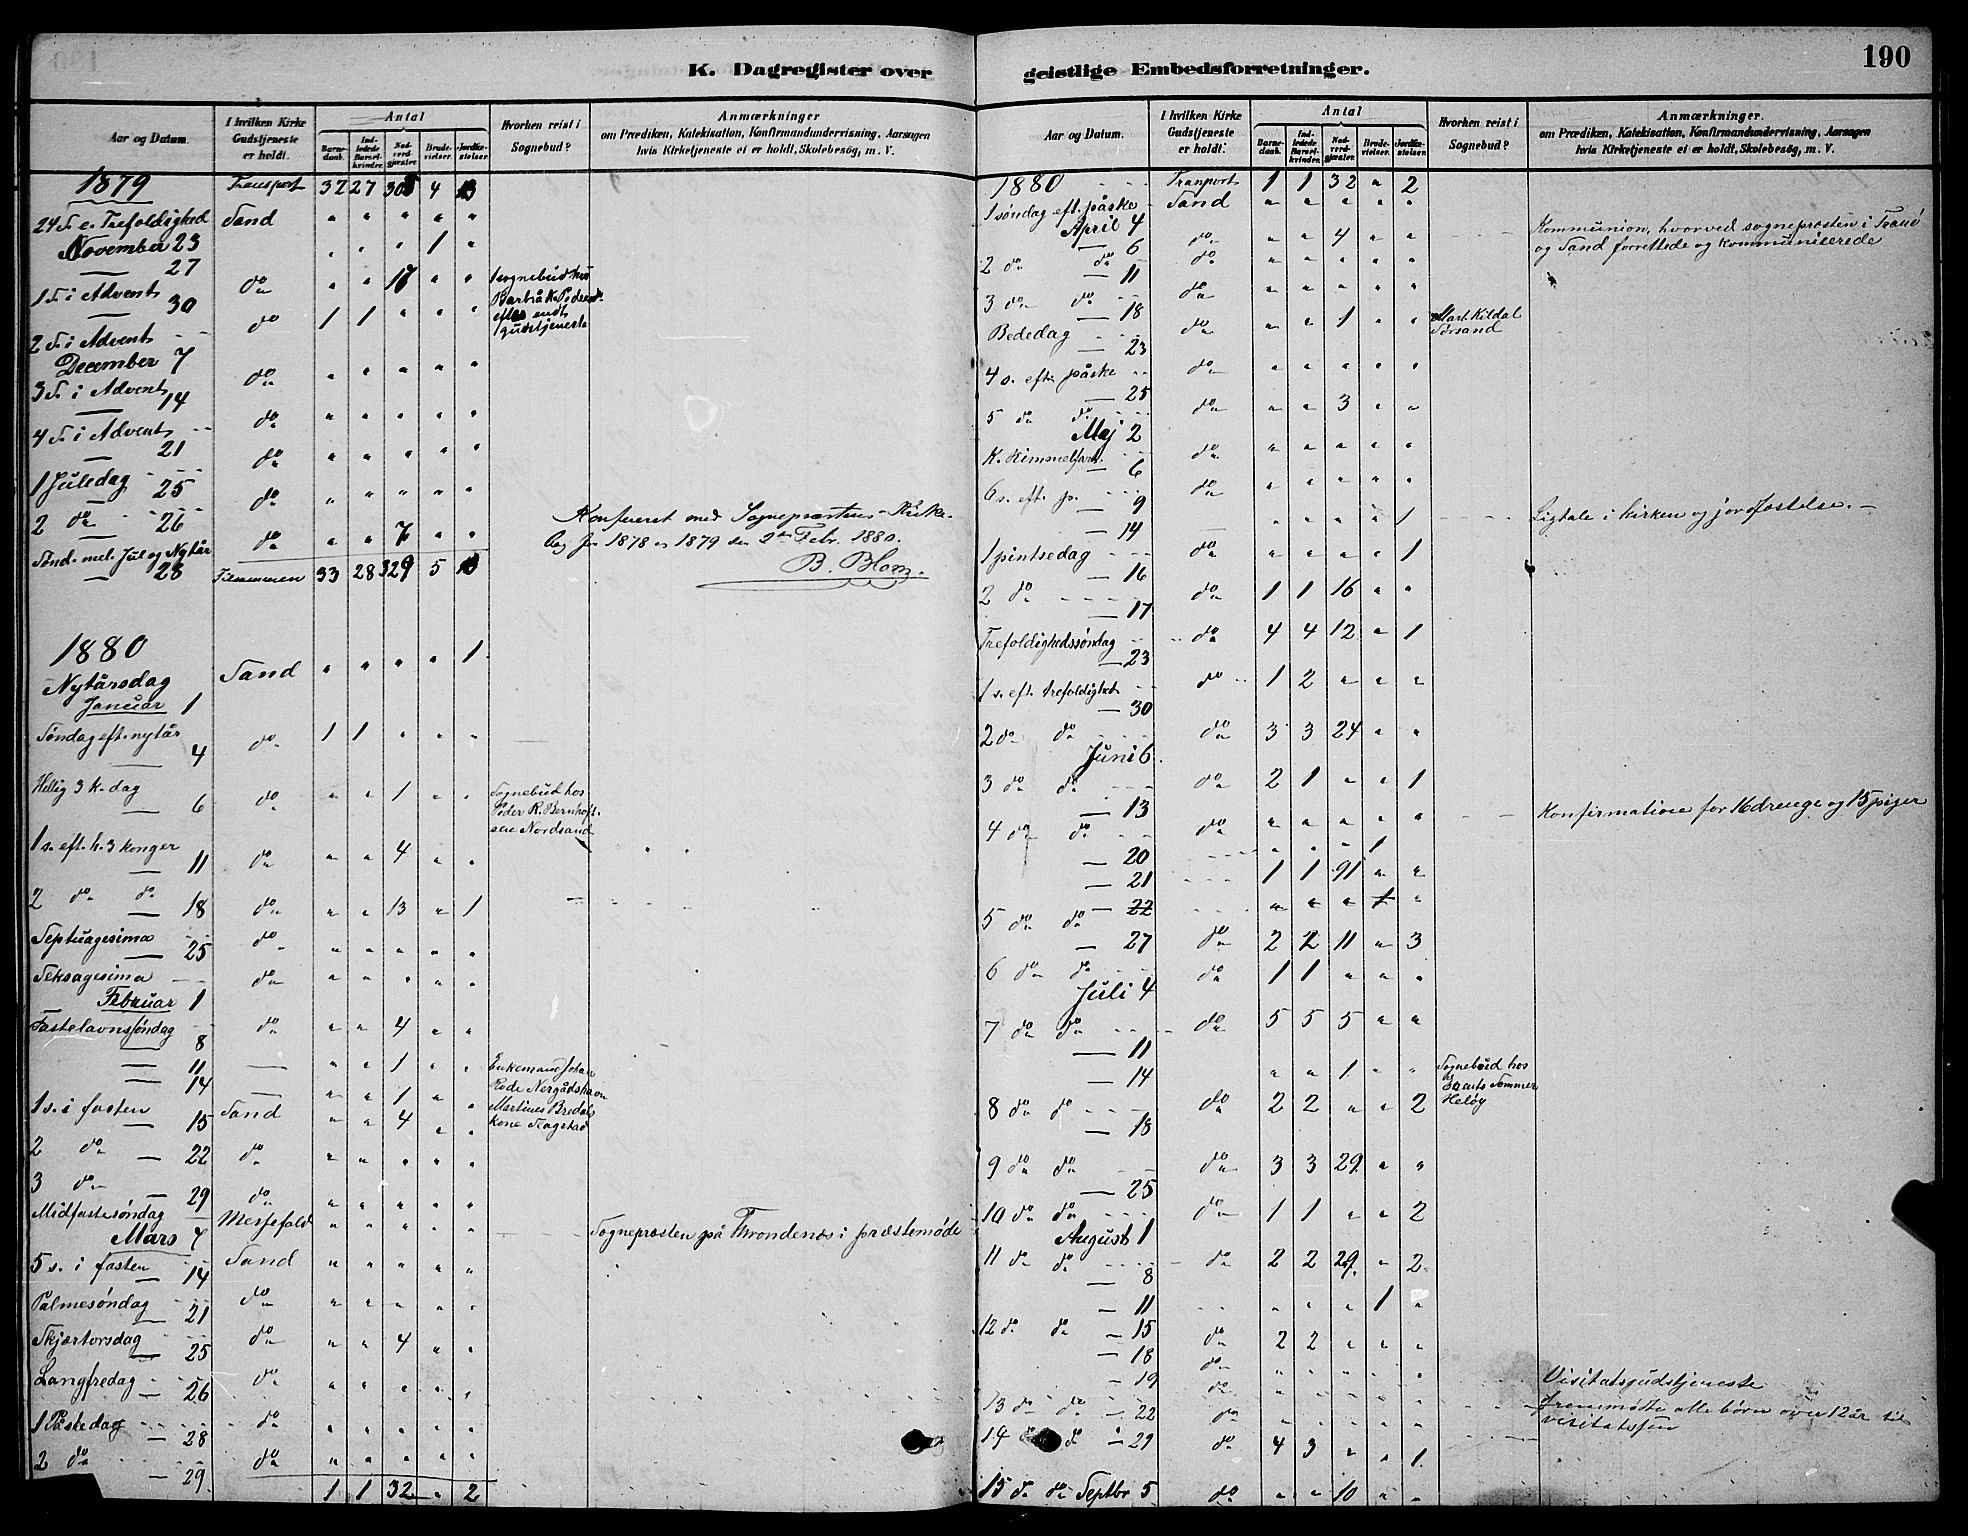 190
K. Dagregister over geistlige Embedsforretninger.
Aar og Datum.
I hvilken Kirke Gudstjeneste er holdt.
Antal
Barnedaab.
Indledede Barselkvinder.
Nadverdgjæster.
Brudevielser.
Jordfæstelser.
Hvorhen reist i Sognebud?
Anmærkninger
om Prædiken, Katekisation, Konfirmandundervisning. Aarsagen
hvis Kirketjeneste ei er holdt, Skolebesøg, m. V.
1879 Transport 32 27 305 4
24 S. e. Trefoldighed Sand " " " " "
November 23
— 27 " " " 1 "
1 S. i Advent
— 30 do " " 17 " " 1 sognebud hos
2 S. i Advent
December 7 do 1 1 " " " endt
gudstjeneste
3 S. i Advent
— 14 do " " " " "
4 S. i Advent
— 21 do " " " " "
1 Juledag - 25 do " " " " "
2 do — 26 do " " " " "
Sønd. mel. Jul og Nytår
— 28 do " " 7 " "
Konfereret med Sogneprestens Kirke-
bog for 1878 og 1879 den 2den Febr. 1880.
B. Blom.
Tilsammen 33 28 329 5
1880
Nytårsdag
Januar 1 Sand " " " " 1
Søndag eft. nytår
— 4 do 1 1 " " "
Hellig 3 k. dag
— 6 do " " 1 " " Sognebud hos
Peder R. Bernhoft-
sen Nordsand
1 s. eft. h. 3 konger
— 11 do " " 4 " "
2 do do — 18 do " " 13 " 1
Septuagesima
— 25 do " " " " "
Seksagesima
Februar 1 do " " " " "
Fastelavnssøndag
— 8 do " " 4 " "
— 11 — " " 1 " " Enkemand Johan
— 14 — " " 1 " " Martines Bredals
1 s. i fasten
— 15 Sand " " 4 " " kone
2 do — 22 do " " " " "
3 do — 29 do " " " " "
Midfastesøndag
Mars 7 Messefald " " " " " Sognepresten på Throndenæs i præstemøde
5 s. i fasten
— 14 Sand " " " " "
Palmesøndag
— 21 do " " " " "
Skjærtorsdag
— 25 do " " 4 " "
Langfredag
— 26 do " " " " "
1 Påskedag
— 28 do " " " " "
2 do
— 29 do " " " " "
1 1 32 " 2
Aar og Datum.
I hvilken Kirke Gudstjeneste er holdt.
Antal
Barnedaab.
Indledede Barselkvinder.
Nadverdgjæster.
Brudevielser.
Jordfæstelser.
Hvorhen reist i Sognebud?
Anmærkninger.
om Prædiken, Katekisation, Konfirmandundervisning, Aarsagen
hvis Kirketjeneste ei er holdt, Skolebesøg, m. V.
1880 Tranport 1 1 32 " 2
1 søndag eft. påske
April 4 Sand " " " " "
— 6 do " " 4 " " Kommunion, hvorved sognepræsten i Tranø
og Sand forrettede og kommunicerede
2 do do
— 11 do " " " " "
3 do do
— 18 do " " " " "
Bededag
— 23 do " " 1 " " Mart. Kildal
4 s. eft. påske
— 25 do " " " " "
5 do do
Maj 2 do " " 3 " "
K. Himmelfart.
— 6 do " " " " "
6 s. eft. p.
— 9 do " " " " "
— 14 — " " " " 1 Ligtale i kirken og jordfæstelse.
1 pintsedag
— 16 do " " " " 1
2 do
— 17 do 1 1 16 " "
Trefoldighedssøndag
— 23 do 4 4 12 " 1
1 s. eft. trefoldighet
— 30 do 1 2 " " "
2 do do
Juni 6 do 3 3 24 " "
3 do do
— 13 do 2 1 " " 1
4 do do
— 20 do " " " " " Konfirmation for 16 drenge og 15 piger
" " " 1
— 21 1 1 91 " "
— 22 " " " 1 "
5 do do
— 27 do 2 2 11 " 3
6 do do
Juli 4 do 1 1 " " "
7 do do
— 11 do 5 5 5 " "
— 14 " " 1 " " Sognebud hos
8 do do
— 18 do 2 2 " " 2
9 do do
— 25 do 3 3 29 " "
10 do do
August 1 do 1 1 " " 2
11 do do
— 8 do 2 2 29 " 2
— 11 " " " 1 "
12 do do — 15 do 2 2 " " "
— 18 do " " " " "
— 19 do " " " " " Visitatsgudstjeneste
13 do do — 22 do " " " " " Fremmøtte alle børn over 12 år til
visitatsen
14 do do — 29 do 4 3 " " 1
15 do do Septbr 5 do " " 10 " "